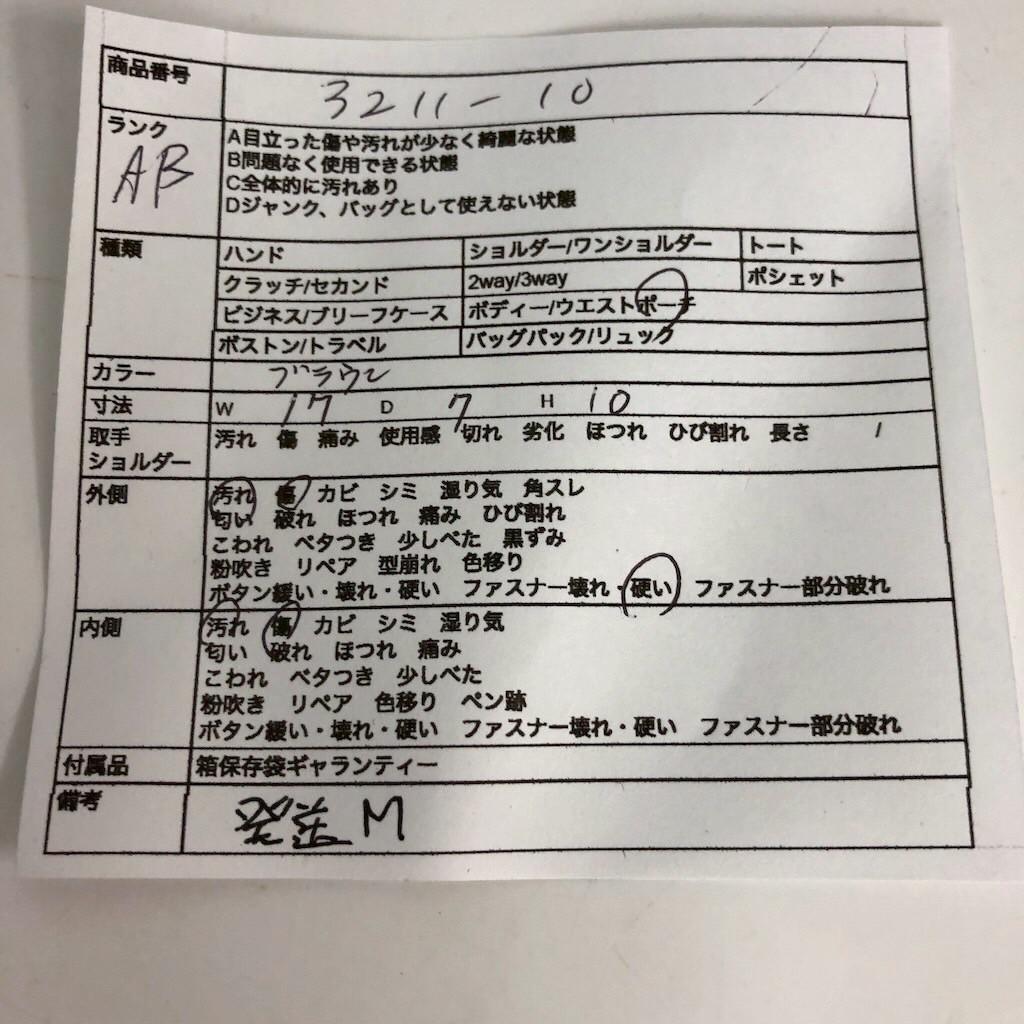 商品番号 3211-10
ランク AB
A目立った傷や汚れが少なく綺麗な状態
B問題なく使用できる状態
C全体的に汚れあり
Dジャンク、バッグとして使えない状態
種類 ハンド ショルダー/ワンショルダー トート
クラッチ/セカンド 2way/3way ポシェット
ビジネス/ブリーフケース ボディー/ウエストポーチ
ボストン/トラベル バッグパック/リュック
カラー ブラウン
寸法 W 17 D 7 H 10
取手 汚れ 傷 痛み 使用感 切れ 劣化 ほつれ ひび割れ 長さ /
ショルダー
外側 汚れ 傷 カビ シミ 湿り気 角スレ
匂い 破れ ほつれ 痛み ひび割れ
こわれ ベタつき 少しべた 黒ずみ
粉吹き リペア 型崩れ 色移り
ボタン緩い・壊れ・硬い ファスナー壊れ・硬い ファスナー部分破れ
内側 汚れ 傷 カビ シミ 湿り気
匂い 破れ ほつれ 痛み
こわれ ベタつき 少しべた
粉吹き リペア 色移り ペン跡
ボタン緩い・壊れ・硬い ファスナー壊れ・硬い ファスナー部分破れ
付属品 箱保存袋ギャランティー
備考 M